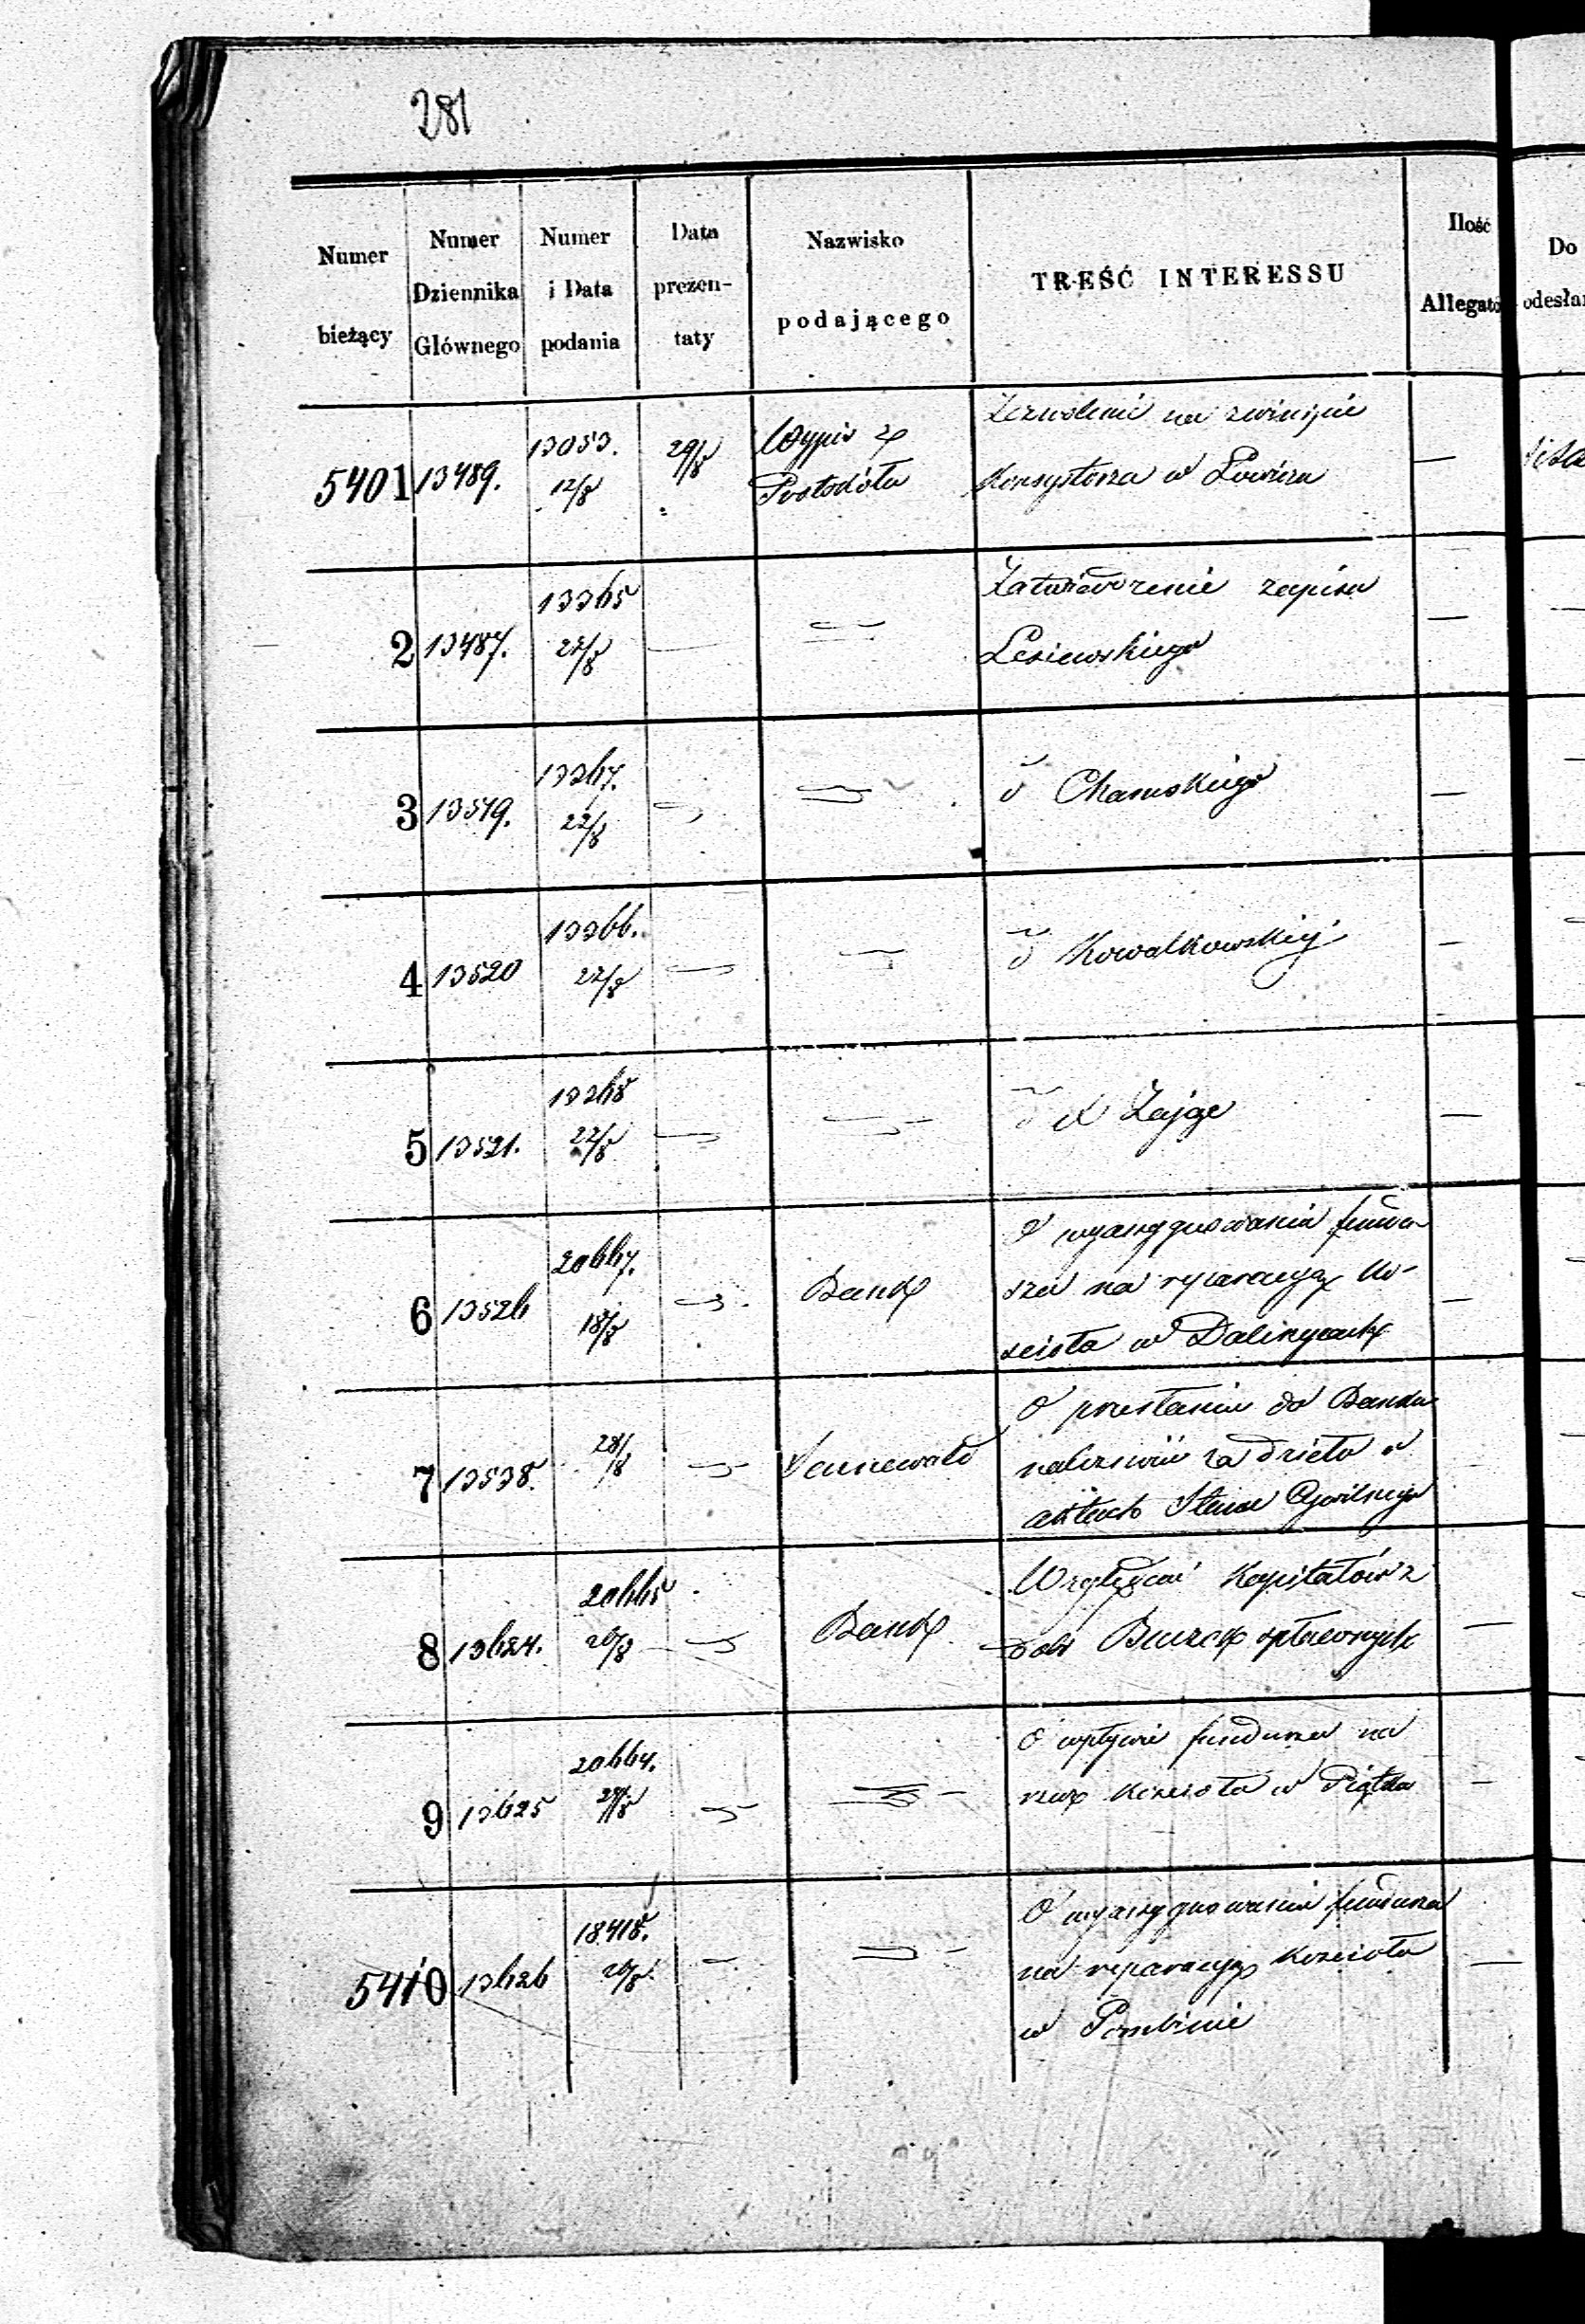 281
Numer bieżący
Numer Dziennika Głównego
Numer i Data podania
Data prezen- taty
Nazwisko podającego
TREŚĆ INTERESSU
Ilość
Do
5401 13489. 13053. 12/8 29/8 Wypis z Protokółu
Zezwolenie na zwinięcie
Konsystorza w Łowiczu —
2 13487. 13365 22/8
Zatwierdzenie zapisu
Lesiewskiego —
3 13519. 13367. 22/8
d Chamskiego —
4 13520 13366. 22/8
d Kowalkowskiej —
5 13521. 13368 22/8
d X Zając —
6 13526 20667. 18/8 Bank
O wyassygnowaniu fundu
szu na reparacyą Ko-
ścioła w —
7 13538. 28/8
O przesłaniu do Banku
należności za dzieło o
aktach Stanu Cywilnego
8 13624. 20665 20/8 Bank
Względem Kapitałów z
dóbr spłaconych —
9 13625 20664.
O wpływie funduszu na
rzecz Kościoła w Piątku —
5410 13626 18418. 20/8
O wyassygnowaniu funduszu
na reparacyą Kościoła
w —